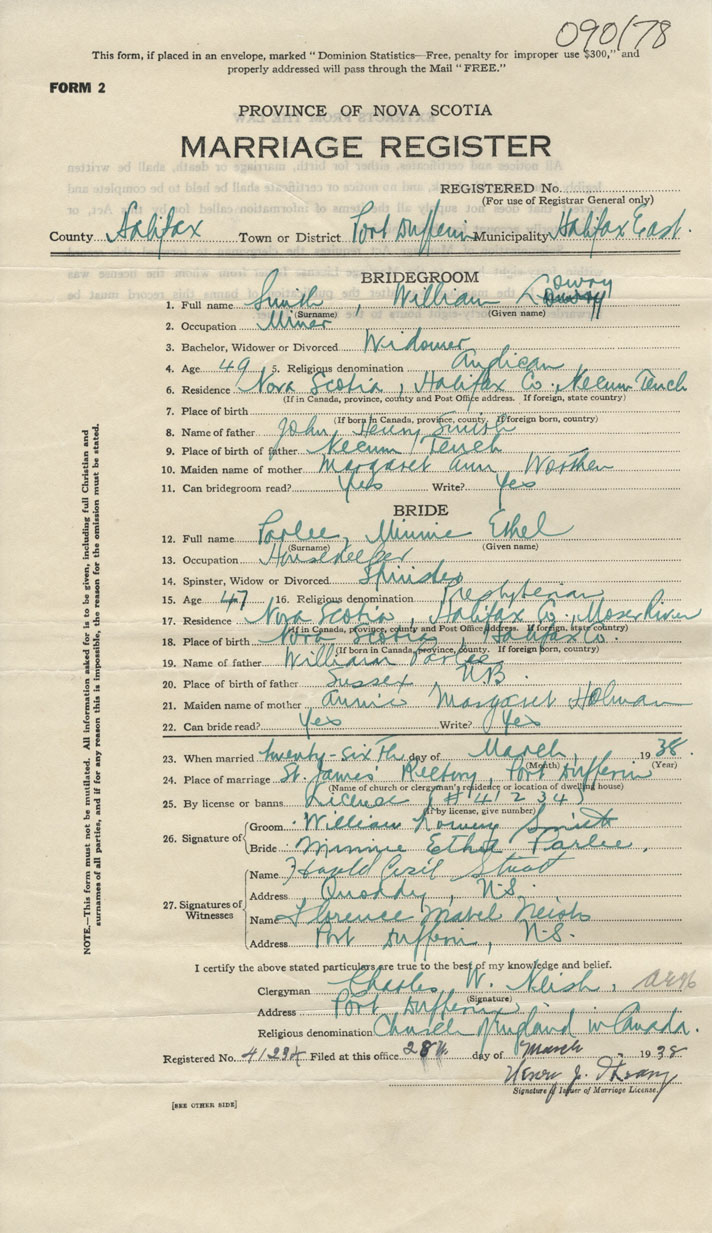 090178
This form, if placed in an envelope, marked "Dominion Statistics—Free, penalty for improper use $300," and
properly addressed will pass through the Mail "FREE."
FORM 2
PROVINCE OF NOVA SCOTIA
MARRIAGE REGISTER
REGISTERED No.
(For use of Registrar General only)
County Halifax Town or District Port Dufferin Municipality Halifax East.
BRIDEGROOM
Lowry
1. Full name Smith, William
(Surname) (Given name)
2. Occupation Miner
3. Bachelor, Widower or Divorced Widower
4. Age 49 5. Religious denomination Anglican
6. Residence Nova Scotia, Halifax Co., Necum Teuch
(If in Canada, province, county and Post Office address. If foreign, state country)
7. Place of birth
(If born in Canada, province, county. If foreign born, country)
8. Name of father John Henry Smith
9. Place of birth of father Necum Teuch
10. Maiden name of mother Margaret Ann
11. Can bridegroom read? Yes Write? Yes
BRIDE
12. Full name Parlee, Minnie Ethel
(Surname) (Given name)
13. Occupation Housekeeper
14. Spinster, Widow or Divorced Spinster
15. Age 47 16. Religious denomination Presbyterian
17. Residence Nova Scotia, Halifax Co., Moser River
(If in Canada, province, county and Post Office address. If foreign, state country)
18. Place of birth Nova Scotia, Halifax Co.
(If born in Canada, province, county. If foreign born, country)
19. Name of father William Parlee
20. Place of birth of father Sussex N.B.
21. Maiden name of mother Annie Margaret Holman
22. Can bride read? Yes Write? Yes
23. When married twenty-sixth day of March, 1938.
(Month) (Year)
24. Place of marriage St. James' Rectory, Port Dufferin
(Name of church or clergyman's residence or location of dwelling house)
25. By license or banns License (#41234)
(If by license, give number)
26. Signature of
Groom William Lowry Smith
Bride Minnie Ethel Parlee.
27. Signatures of Witnesses
Name Harold Cecil
Address Quoddy, N.S.
Name Florence Mabel Neish
Address Port Dufferin, N.S.
I certify the above stated particulars are true to the best of my knowledge and belief.
Clergyman Charles W. Neish,
(Signature)
Address Port Dufferin
Religious denomination Church of England in Canada.
Registered No. 41234 Filed at this office 28th day of March 1938
Henry J.
Signature of Issuer of Marriage License.
[SEE OTHER SIDE]
NOTE.—This form must not be mutilated. All information asked for is to be given, including full Christian and
surnames of all parties, and if for any reason this is impossible, the reason for the omission must be stated.